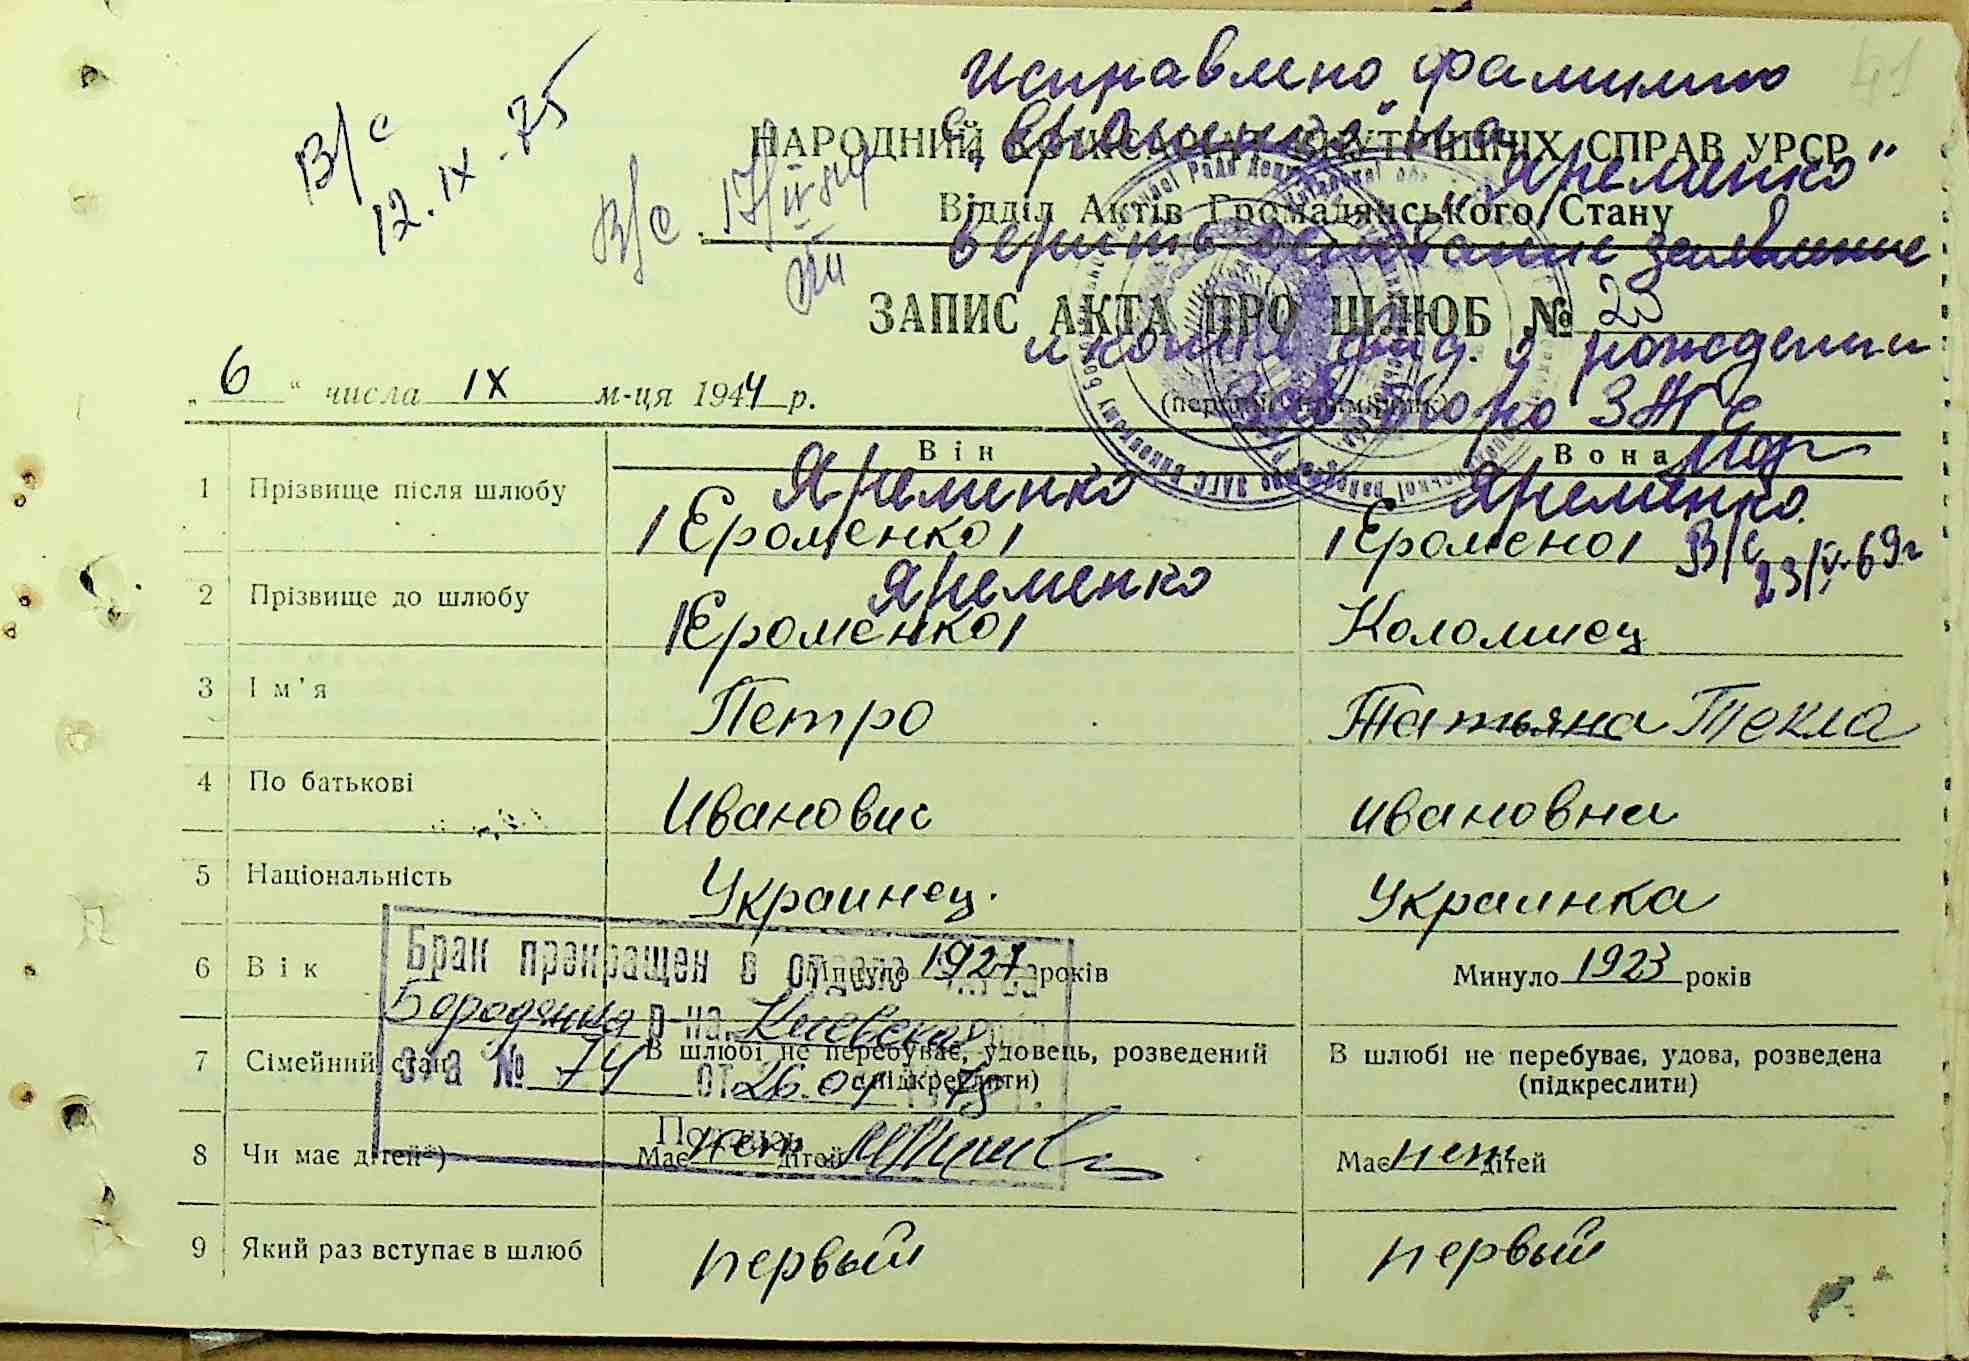 41
Исправлено фамилию
с "Ероменко" на "Яременко"
НАРОДНИЙ КОМІСАРІАТ ВНУТРІШНІХ СПРАВ УРСР
В/с
12.IX.75
В/с 17/IV
Відділ Актів Громадянського Стану
заявление
ЗАПИС АКТА ПРО ШЛЮБ № 23
и копии свид. о рождении
бюро ЗАГС
„ 6 “ числа IX м-ця 1944 р.
(перший примірник)
Він Вона
1 Прізвище після шлюбу Яременко Яременко
Ероменко Еромено В/с 23/V-69г
2 Прізвище до шлюбу Яременко
Ероменко Коломиец
3 Ім'я Петро Татьяна Текла
4 По батькові Иванович ивановна
5 Національність Украинец. Украинка
Брак прекращен в отделе ЗАГСа
6 Вік Минуло 1927 років Минуло 1923 років
Бородянка р-на Киевская
7 Сімейний стан В шлюбі не перебуває, удовець, розведений В шлюбі не перебуває, удова, розведена
(підкреслити) (підкреслити)
№ 74 от 26.04
Подпись
8 Чи має дітей*) Має нет дітей Має нет дітей
9 Який раз вступає в шлюб первый первый